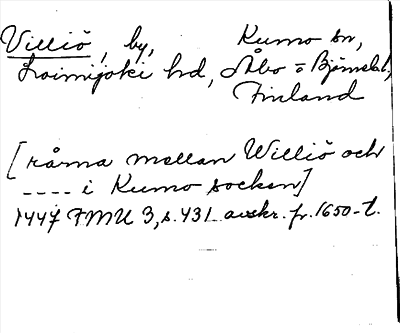 Villiö, by, Kumo sn,
Loimijoki hd, Åbo- o Björneb.l,
Finland
[råma mellan Williö och
---- i Kumo socken]
1447 FMU 3, s. 431 avskr. fr. 1650-t.